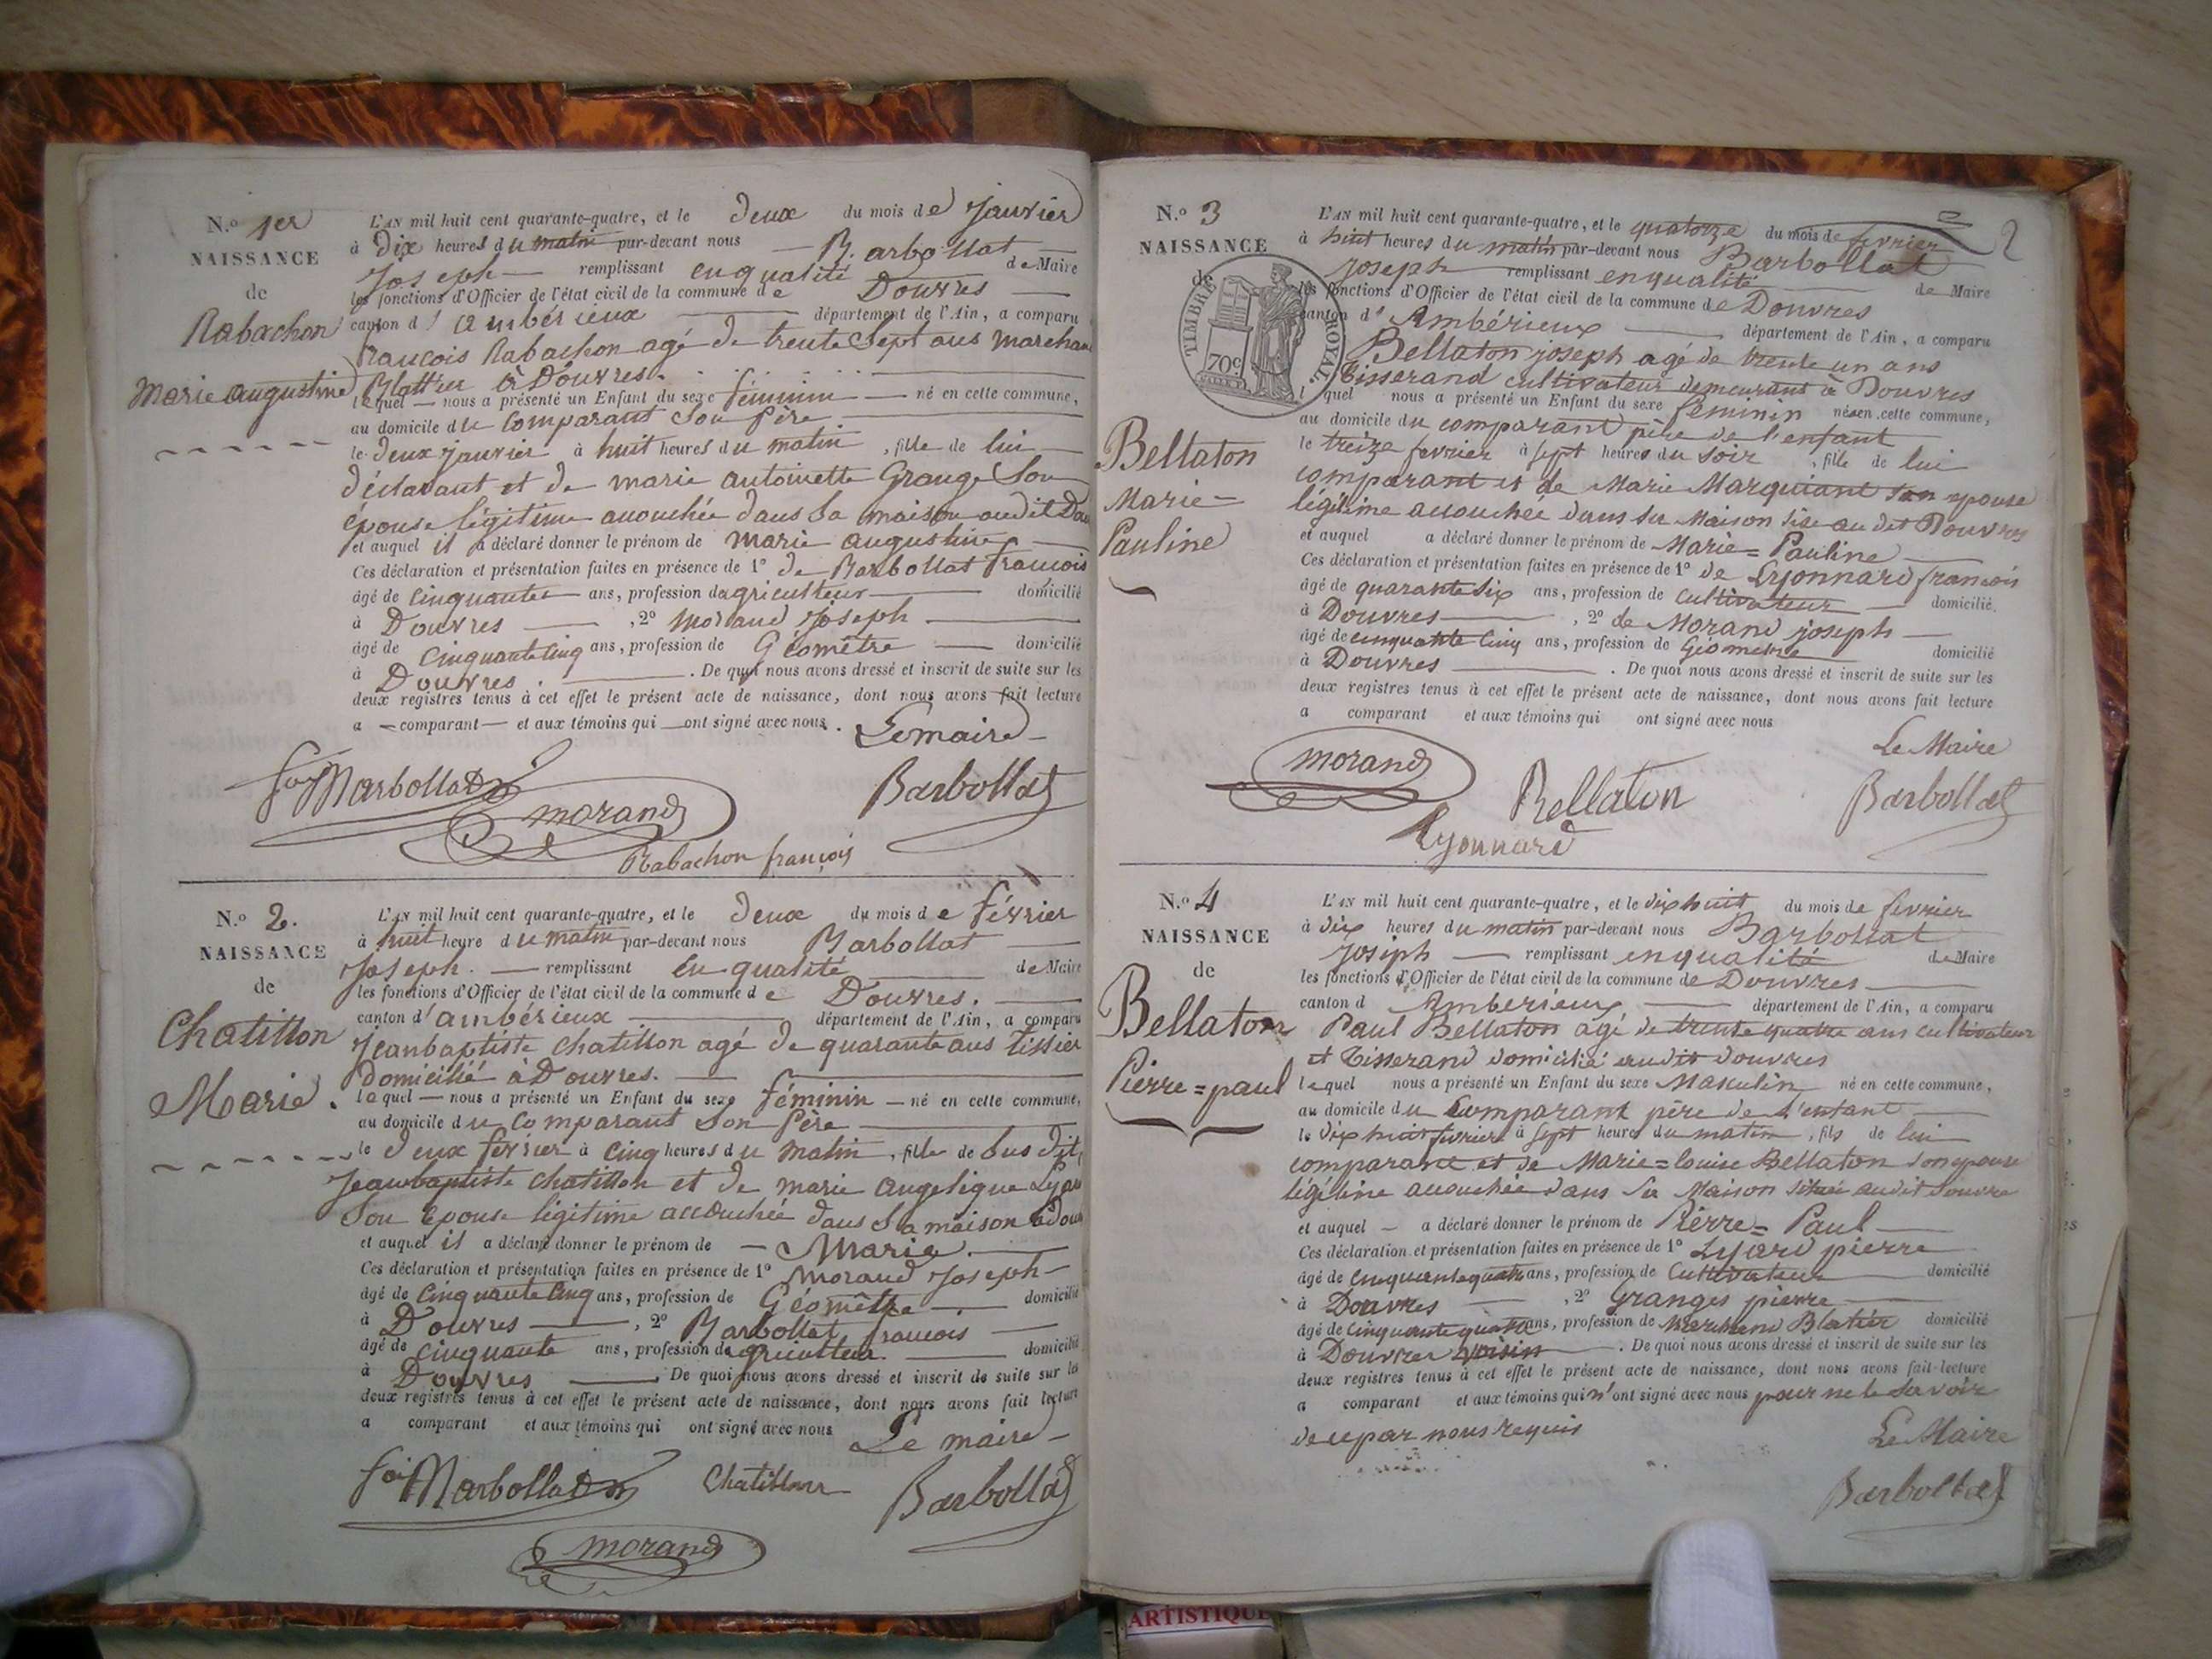 N.o 1er
NAISSANCE
de
Rabachon
Marie augustine
L'AN mil huit cent quarante-quatre, et le deux du mois de Janvier
à dix heures du matin par-devant nous Barbollat
Joseph remplissant en qualité de Maire
les fonctions d'Officier de l'état civil de la commune de Douvres
canton d'ambérieux département de l'Ain, a comparu
francois Rabachon agé de trente sept ans marchand
Blattier à Douvres.
lequel nous a présenté un Enfant du sexe féminin né en cette commune,
au domicile du comparant son père
le deux janvier à huit heures du matin, fille de lui
déclarant et de marie antoinette Grange Son
épouse légitime accouchée dans sa maison audit Dou
et auquel il a déclaré donner le prénom de marie augustine
Ces déclaration et présentation faites en présence de 1° de Barbollat francois
âgé de cinquante ans, profession dagriculteur domicilié
à Douvres, 2° Morand Joseph
âgé de cinquante cinq ans, profession de Géomêtre domicilié
à Douvres. De quoi nous avons dressé et inscrit de suite sur les
deux registres tenus à cet effet le présent acte de naissance, dont nous avons fait lecture
a comparant et aux témoins qui ont signé avec nous. Lemaire
Barbollat
Barbollat
morand
Rabachon françois
N.o 2.
NAISSANCE
de
Chatillon
Marie.
L'AN mil huit cent quarante-quatre, et le deux du mois de février
à huit heure du matin par-devant nous Barbollat
Joseph. remplissant en qualité de Maire
les fonctions d'Officier de l'état civil de la commune de Douvres.
canton d'ambérieux département de l'Ain, a comparu
Jeanbaptiste chatillon agé de quarante ans tissier
domicilié à Douvres.
lequel nous a présenté un Enfant du sexe féminin né en cette commune,
au domicile du comparant son père
le deux février à cinq heures du matin, fille de sus dit
Jeanbaptiste chatillon et de marie angelique
Son epouse légitime accouchée dans sa maison à Dou
et auquel il a déclaré donner le prénom de Marie.
Ces déclaration et présentation faites en présence de 1° Morand Joseph
âgé de cinquante cinq ans, profession de Géomêtre domicilié
à Douvres, 2° Barbollat francois
âgé de cinquante ans, profession dagriculteur. domicilié
à Douvres De quoi nous avons dressé et inscrit de suite sur les
deux registres tenus à cet effet le présent acte de naissance, dont nous avons fait lecture
a comparant et aux témoins qui ont signé avec nous Le maire
Barbollat
Chatillon
Barbollat
morand
2
N.o 3
NAISSANCE
de
TIMBRE ROYAL.
70c
Bellaton
Marie
Pauline
L'AN mil huit cent quarante-quatre, et le quatorze du mois de fevrier
à huit heures du matin par-devant nous Barbollat
joseph remplissant en qualité de Maire
les fonctions d'Officier de l'état civil de la commune de Douvres
canton d'Ambérieux département de l'Ain, a comparu
Bellaton joseph agé de trente un ans
Tisserand cultivateur demeurant à Douvres
l quel nous a présenté un Enfant du sexe feminin né en cette commune,
au domicile du comparant père de l'enfant
le treize fevrier à sept heures du soir, fille de lui
comparant et de Marie Marquiant son epouse
légitime accouchée dans sa Maison sise au dit Douvres
et auquel a déclaré donner le prénom de Marie=Pauline
Ces déclaration et présentation faites en présence de 1° de Lyonnard francois
âgé de quarante six ans, profession de cultivateur domicilié.
à Douvres, 2° de Morand joseph
âgé de cinquante cinq ans, profession de Géometre domicilié
à Douvres. De quoi nous avons dressé et inscrit de suite sur les
deux registres tenus à cet effet le présent acte de naissance, dont nous avons fait lecture
a comparant et aux témoins qui ont signé avec nous
Le Maire
morand
Bellaton
Barbollat
Lyonnard
N.o 4
NAISSANCE
de
Bellaton
Pierre=paul
L'AN mil huit cent quarante-quatre, et le dix huit du mois de fevrier
à dix heures du matin par-devant nous Barbollat
joseph remplissant en qualité de Maire
les fonctions d'Officier de l'état civil de la commune de Douvres
canton d Amberieux département de l'Ain, a comparu
Paul Bellaton agé de trente quatre ans cultivateur
et Tisserand domicilié audit Douvres
lequel nous a présenté un Enfant du sexe Masculin né en cette commune,
au domicile du comparant père de l'enfant
le dix huit fevrier à sept heures du matin, fils de lui
comparant et de Marie=louise Bellaton son epouse
légitime accouchée dans sa Maison située audit Douvre
et auquel a déclaré donner le prénom de Pierre=Paul
Ces déclaration et présentation faites en présence de 1° Lyard pierre
âgé de cinquantequatre ans, profession de cultivateur domicilié
à Douvres, 2° Granges pierre
âgé de cinquantequatre ans, profession de Marchand Blatier domicilié
à Douvres voisin. De quoi nous avons dressé et inscrit de suite sur les
deux registres tenus à cet effet le présent acte de naissance, dont nous avons fait lecture
a comparant et aux témoins qui n'ont signé avec nous pour ne le savoir
de ce par nous requis
Le Maire
Barbollat
ARTISTIQUE